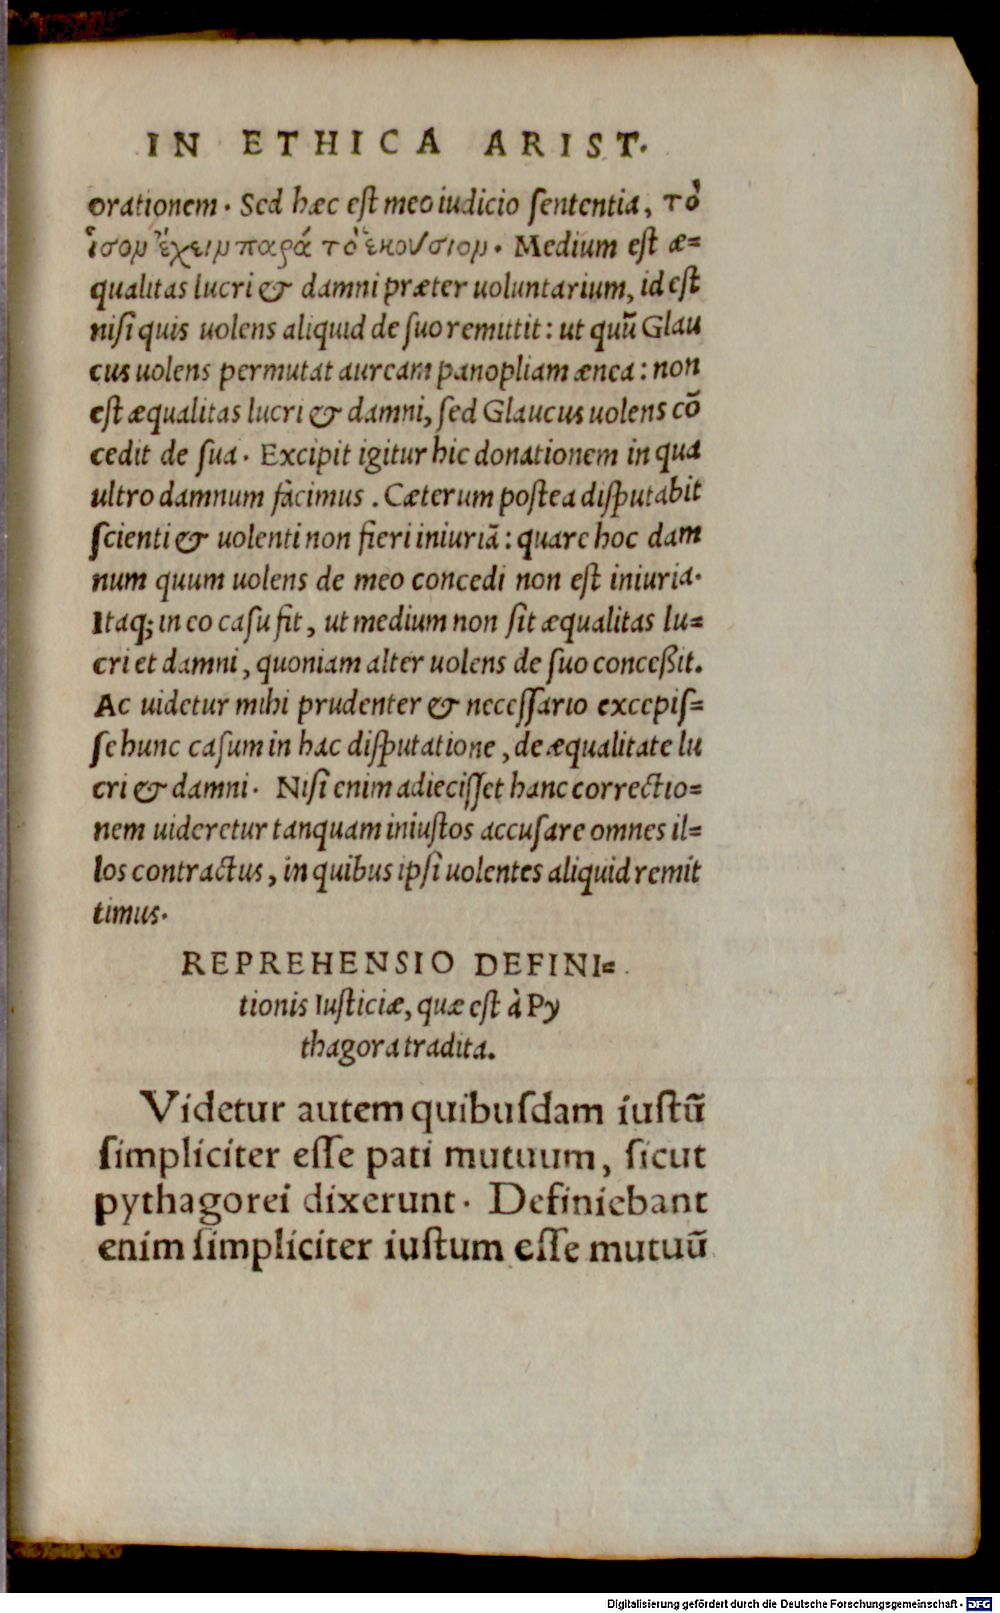 IN ETHICA ARIST.
orationem. Sed hæc est meo iudicio sententia, τὸ
ἶσον ἔχειν παρά τὸ ἑκούσιον. Medium est æ=
qualitas lucri & damni præter uoluntarium, id est
nisi quis uolens aliquid de suo remittit: ut quũ Glau
cus uolens permutat auream panopliam ænea: non
est æqualitas lucri & damni, sed Glaucus uolens cõ
cedit de sua. Excipit igitur hic donationem in qua
ultro damnum facimus. Cæterum postea disputabit
scienti & uolenti non fieri iniuriã: quare hoc dam
num quum uolens de meo concedi non est iniuria.
Itaq; in eo casu fit, ut medium non sit æqualitas lu=
cri et damni, quoniam alter uolens de suo conceßit.
Ac uidetur mihi prudenter & necessario excepis=
se hunc casum in hac disputatione, de æqualitate lu
cri & damni. Nisi enim adiecisset hanc correctio=
nem uideretur tanquam iniustos accusare omnes il=
los contractus, in quibus ipsi uolentes aliquid remit
timus.
REPREHENSIO DEFINI=
tionis Iusticiæ, quæ est à Py
thagora tradita.
Videtur autem quibusdam iustũ
simpliciter esse pati mutuum, sicut
pythagorei dixerunt. Definiebant
enim simpliciter iustum esse mutuũ
Digitalisierung gefördert durch die Deutsche Forschungsgemeinschaft - DFG